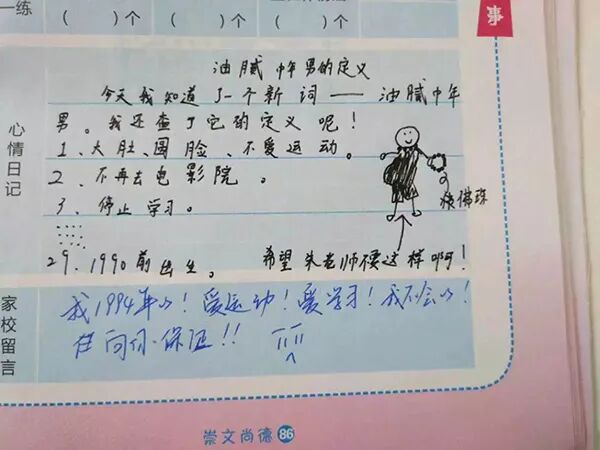 一练
( )个 ( )个 ( )个
事
心情日记
油腻中年男的定义
今天我知道了一个新词——油腻中年
男。我还查了它的定义呢!
1、大肚、圆脸、不爱运动。
2、不再去电影院。
3、停止学习。
......
29.1990前出生。 希望朱老师不要这样啊!
佛珠
家校留言
我1994年的!爱运动!爱学习!我不会的!
向你保证!!
崇文尚德 86